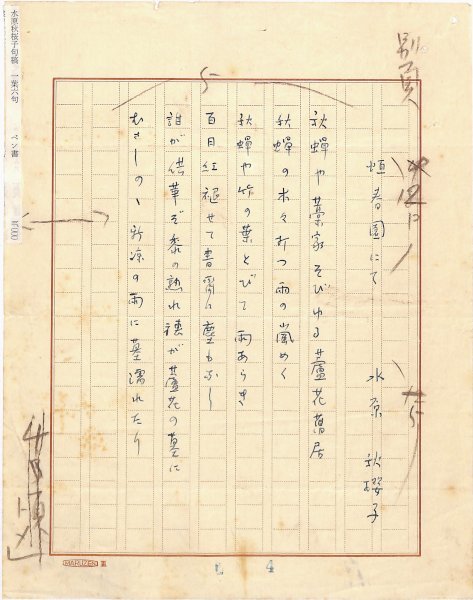 別頁
5
恒春園にて
水原 秋櫻子
秋蟬や藁家そびゆる蘆花舊居
秋蟬の木々打つ雨の嵐めく
秋蟬や竹の葉とびて雨あらき
百日紅褪せて書窗に塵もなし
誰が供華ぞ黍の熟れ穂が蘆花の墓に
むさしのゝ新涼の雨に墓濡れたり
水原秋桜子句稿 一葉六句 ペン書
MARUZEN
4